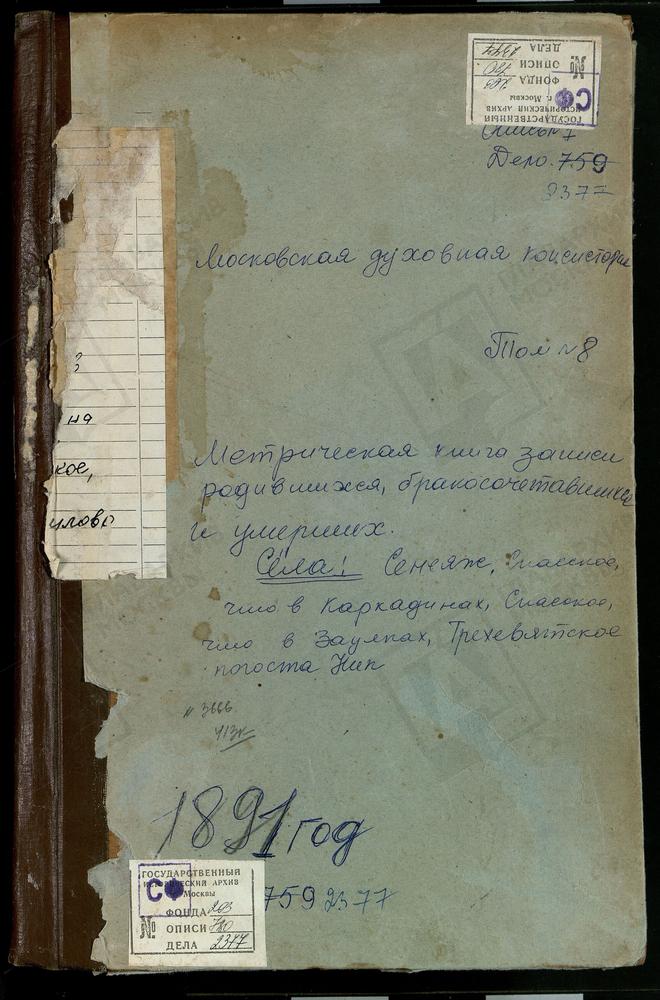 ГОСУДАРСТВЕННЫЙ
ИСТОРИЧЕСКИЙ АРХИВ
г. Москвы
СФ
ФОНДА 203
№ ОПИСИ 780
ДЕЛА 2377
Дело. 759
2377
Московская духовная консистория
Том № 8
на
кое,
Метрическая книга записи
родившихся, бракосочетавшихся
и умерших.
Сёла: Сенеяж, Спасское,
что в Каркадинах, Спасское,
что в Заулках, Трехсвятское
погоста Ник
413к
1891 год
759 2377
ГОСУДАРСТВЕННЫЙ
ИСТОРИЧЕСКИЙ АРХИВ
г. Москвы
СФ
ФОНДА 203
№ ОПИСИ 780
ДЕЛА 2377